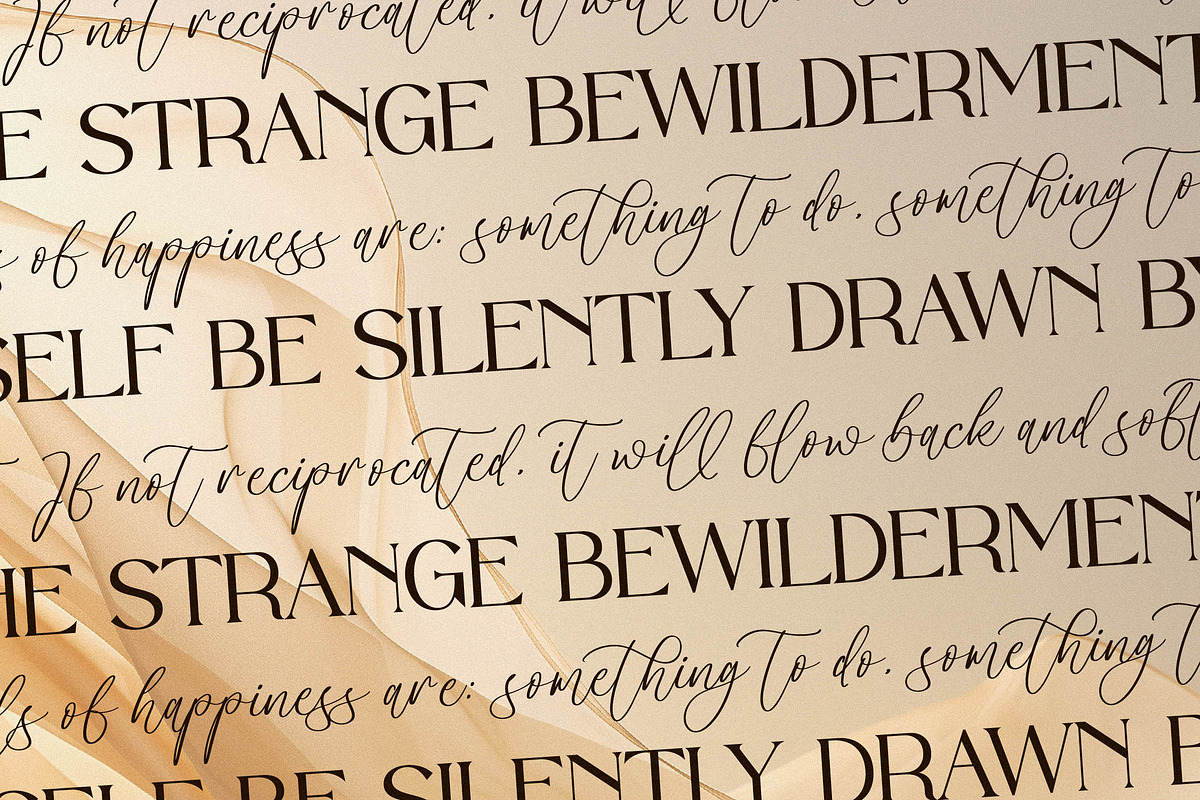 If not reciprocated, it will flow
E STRANGE BEWILDERMENT
s of happiness are: something to do, something to
SELF BE SILENTLY DRAWN BY
If not reciprocated, it will flow back and soft
HE STRANGE BEWILDERMENT
ls of happiness are: something to do, something t
SELF BE SILENTLY DRAWN B